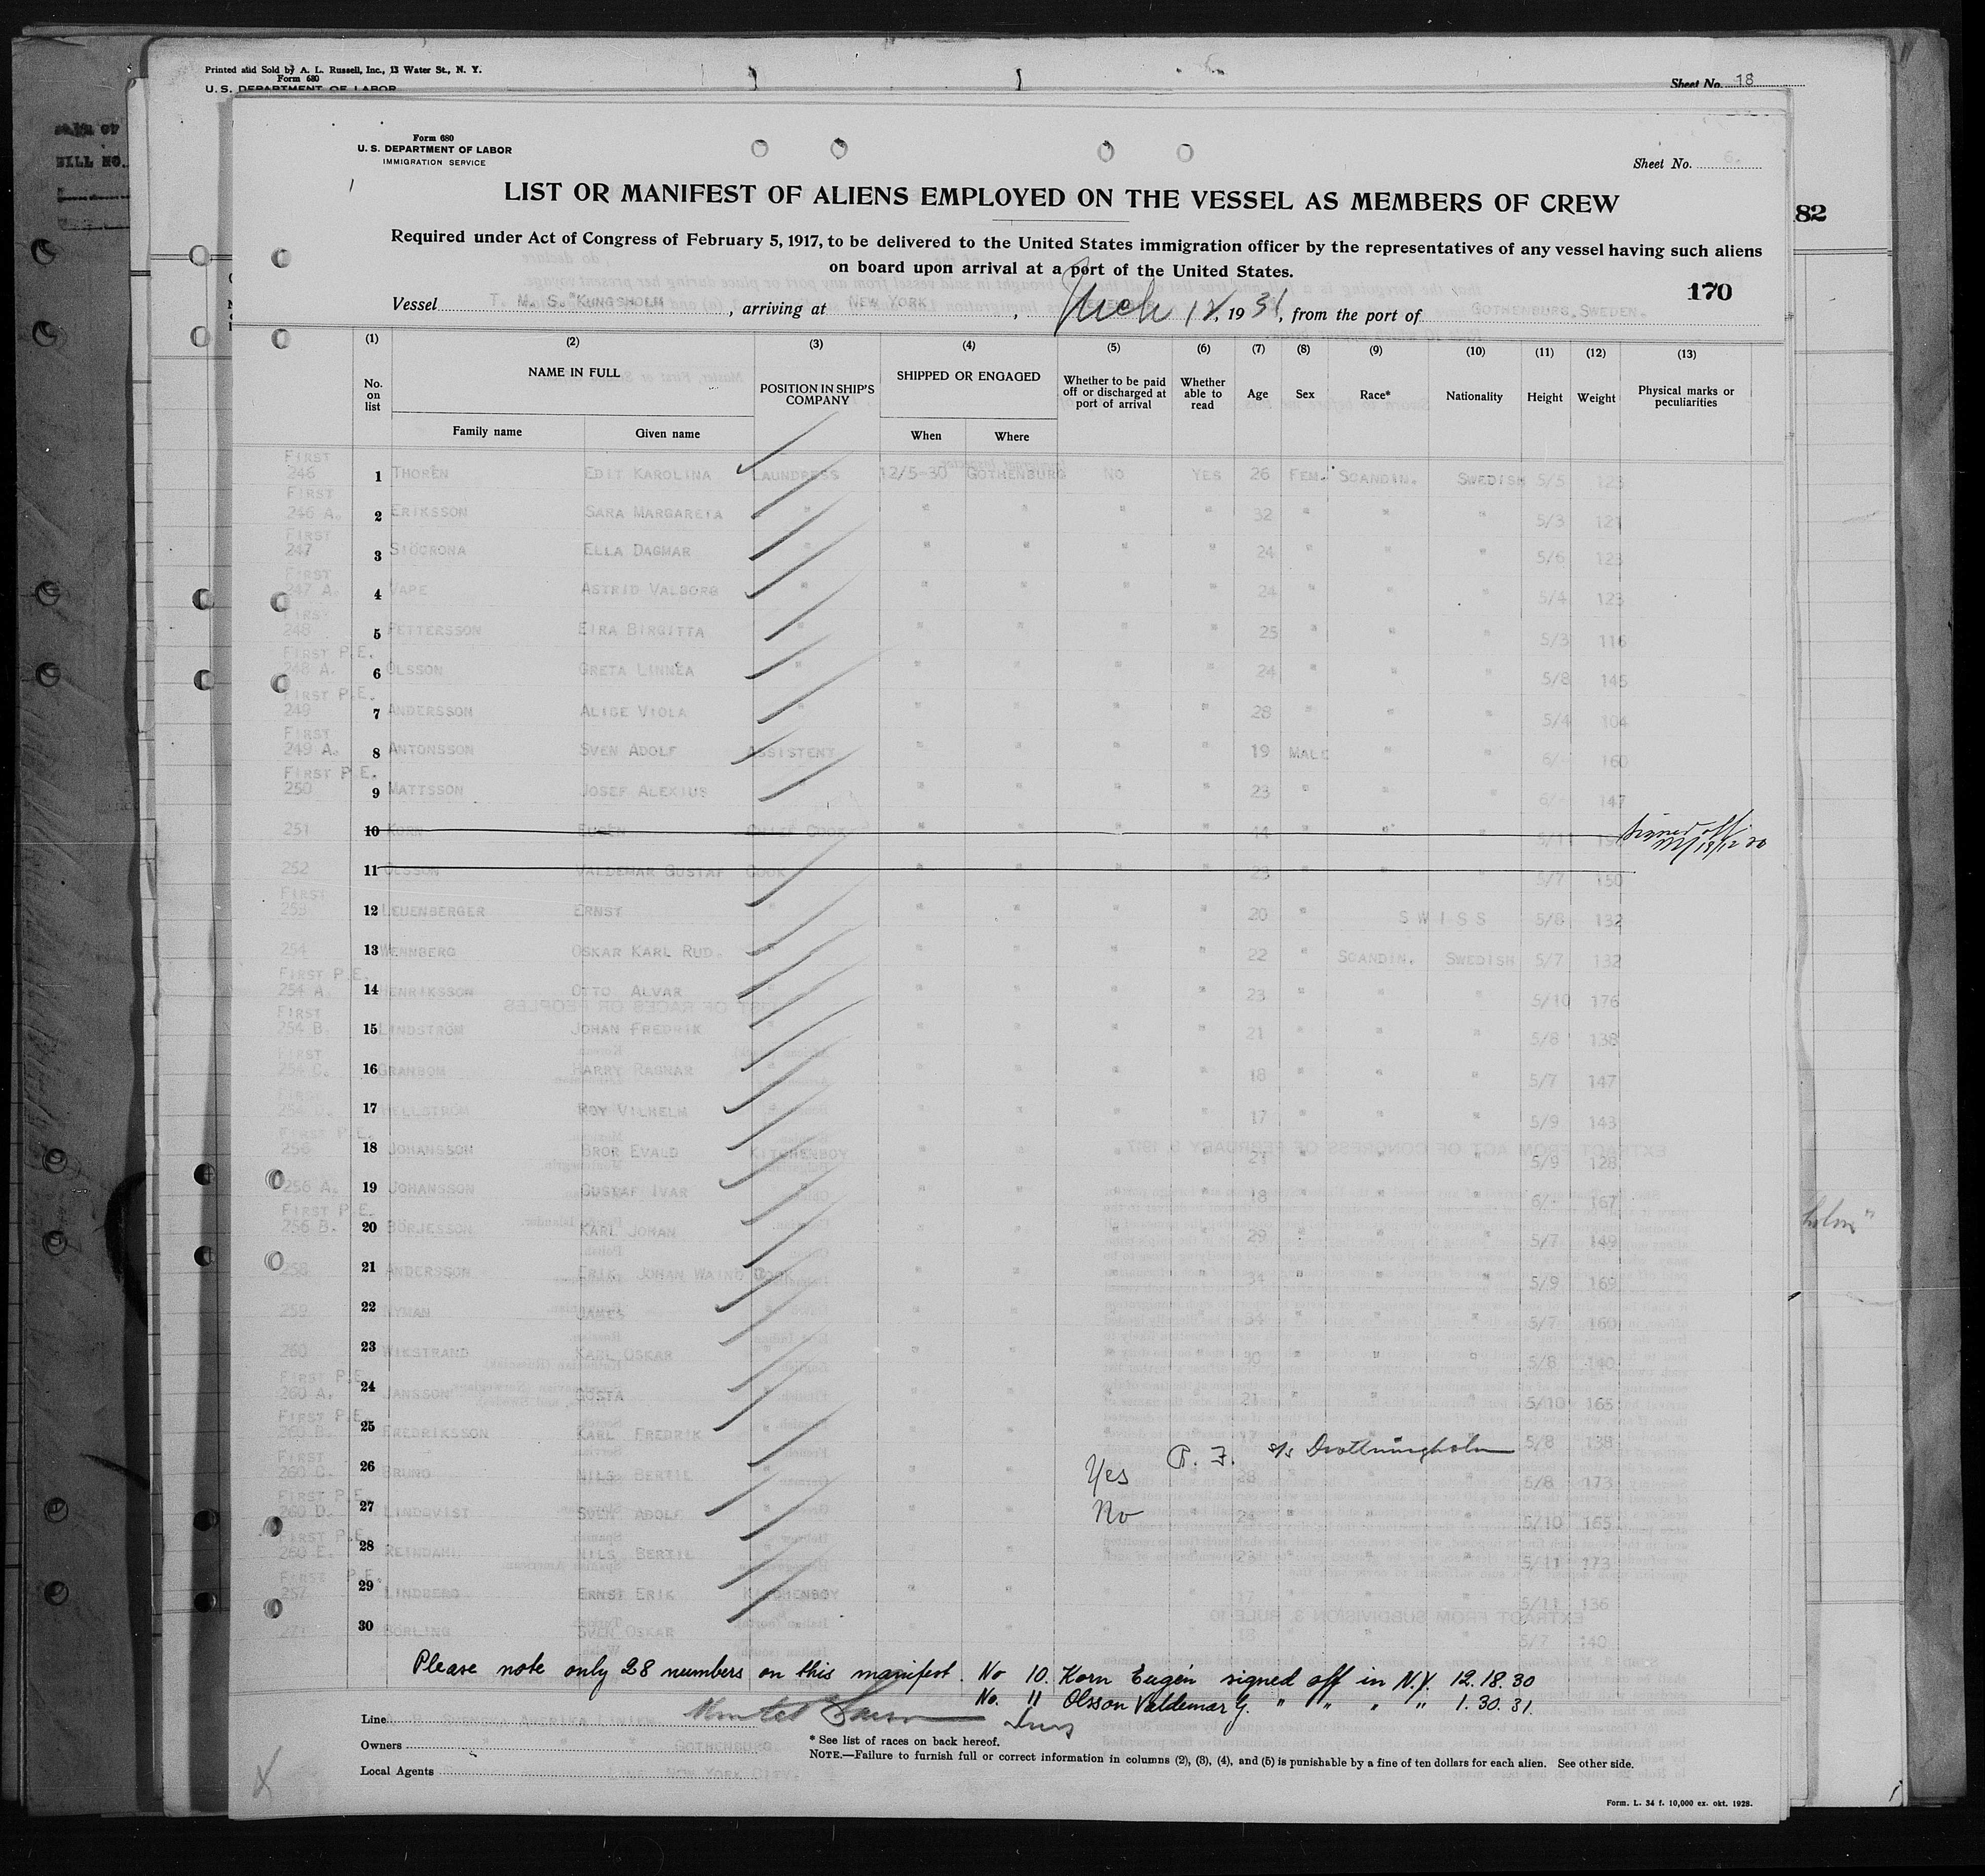 Printed and Sold by A. L. Russell, Inc., 13 Water St., N. Y.
Form 680
U. S. DEPARTMENT OF LABOR
Sheet No. 18
82
Form 680
U. S. DEPARTMENT OF LABOR
IMMIGRATION SERVICE
Sheet No. 6.
LIST OR MANIFEST OF ALIENS EMPLOYED ON THE VESSEL AS MEMBERS OF CREW
Required under Act of Congress of February 5, 1917, to be delivered to the United States immigration officer by the representatives of any vessel having such aliens
on board upon arrival at a port of the United States.
170
Vessel T. M. S. "KUNGSHOLM , arriving at NEW YORK , Mch 12, 1931, from the port of GOTHENBURG, SWEDEN.
(1) (2) (3) (4) (5) (6) (7) (8) (9) (10) (11) (12) (13)
No. on list NAME IN FULL POSITION IN SHIP'S COMPANY SHIPPED OR ENGAGED Whether to be paid off or discharged at port of arrival Whether able to read Age Sex Race* Nationality Height Weight Physical marks or peculiarities
Family name Given name When Where
FIRST
246 1 THORÉN EDIT KAROLINA LAUNDRESS 12/5-30 GOTHENBURG NO YES 26 FEM. SCANDIN. SWEDISH 5/5 123
FIRST
246 A. 2 ERIKSSON SARA MARGARETA " " " " " 32 " " " 5/3 121
FIRST
247 3 SJÖCRONA ELLA DAGMAR " " " " " 24 " " " 5/6 123
FIRST
247 A. 4 VAPE ASTRID VALBORG " " " " " 24 " " " 5/4 123
FIRST
248 5 PETTERSSON EIRA BIRGITTA " " " " " 25 " " " 5/3 116
FIRST P.E.
248 A. 6 OLSSON GRETA LINNÉA " " " " " 24 " " " 5/8 145
FIRST P.E.
249 7 ANDERSSON ALICE VIOLA " " " " " 28 " " " 5/4 104
FIRST
249 A. 8 ANTONSSON SVEN ADOLF ASSISTENT " " " " 19 MALE " " 6/- 160
FIRST P.E.
250 9 MATTSSON JOSEF ALEXIUS " " " " " 23 " " " 6/- 147
251 10 KORN EUGÉN CHIEF COOK " " " " 44 " " " 5/11 signed off
NY 18/12 30
252 11 OLSSON VALDEMAR GUSTAF COOK " " " " 23 " " " 5/7 150
FIRST
253 12 LEUENBERGER ERNST " " " " " 20 " SWISS 5/8 132
254 13 WENNBERG OSKAR KARL RUD. " " " " " 22 " SCANDIN. SWEDISH 5/7 132
FIRST P.E.
254 A 14 HENRIKSSON OTTO ALVAR " " " " " 23 " " " 5/10 176
FIRST
254 B. 15 LINDSTRÖM JOHAN FREDRIK " " " " " 21 " " " 5/8 138
FIRST
254 C. 16 GRANBOM HARRY RAGNAR " " " " " 18 " " " 5/7 147
FIRST
17 HELLSTRÖM ROY VILHELM " " " " " 17 " " " 5/9 143
FIRST P.E.
256 18 JOHANSSON BROR EVALD KITCHENBOY " " " " 21 " " " 5/9 128
256 A. 19 JOHANSSON GUSTAF IVAR " " " " " 18 " " " 6/- 167
FIRST P.E.
256 B. 20 BÖRJESSON KARL JOHAN " " " " " 29 " " " 5/7 149
258 21 ANDERSSON ERIK JOHAN WAINO COOK " " " " 34 " " " 5/9 169
259 22 NYMAN JAMES " " " " " 34 " " " 5/7 160
260 23 WIKSTRAND KARL OSKAR " " " " " 30 " " " 5/8 140
FIRST P.E.
260 A. 24 JANSSON GÖSTA " " " " " 21 " " " 5/10 165
FIRST P.E.
260 B. 25 FREDRIKSSON KARL FREDRIK " " " " " 17 " " " 5/8 138
FIRST
260 C. 26 BRUNO NILS BERTIL " " " Yes P. F. s/s Drottningholm 28 " " " 5/8 173
FIRST P.E.
260 D. 27 LINDQVIST SVEN ADOLF " " " No " 24 " " " 5/10 165
FIRST P.E.
260 E. 28 REINDAHL NILS BERTIL " " " " " 23 " " " 5/11 173
FIRST P.E.
257 29 LINDBERG ERNST ERIK KITCHENBOY " " " " 17 " " " 5/11 136
271 30 BORLING SVEN OSKAR " " " " " 18 " " " 5/7 140
Please note only 28 numbers on this manifest. No 10. Korn Eugén signed off in N.Y. 12.18.30
No. 11 Olsson Valdemar G. " " " " 1.30.31.
Line SVENSKA AMERIKA LINIEN
Owners " " " GOTHENBURG.
Local Agents LINE NEW YORK CITY.
* See list of races on back hereof.
NOTE.—Failure to furnish full or correct information in columns (2), (3), (4), and (5) is punishable by a fine of ten dollars for each alien. See other side.
Form. L. 34 f. 10,000 ex. okt. 1928.
holm"